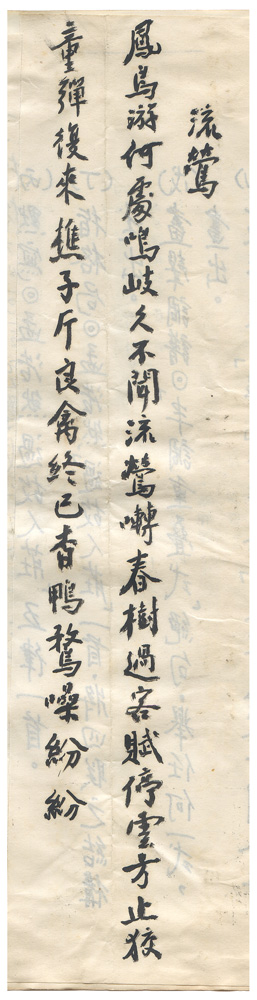 流鶯
鳳鳥游何處鳴岐久不聞流鶯囀春樹過客賦停雲方止狡
童彈復來樵子斤良禽終已杳鴨鶩噪紛紛